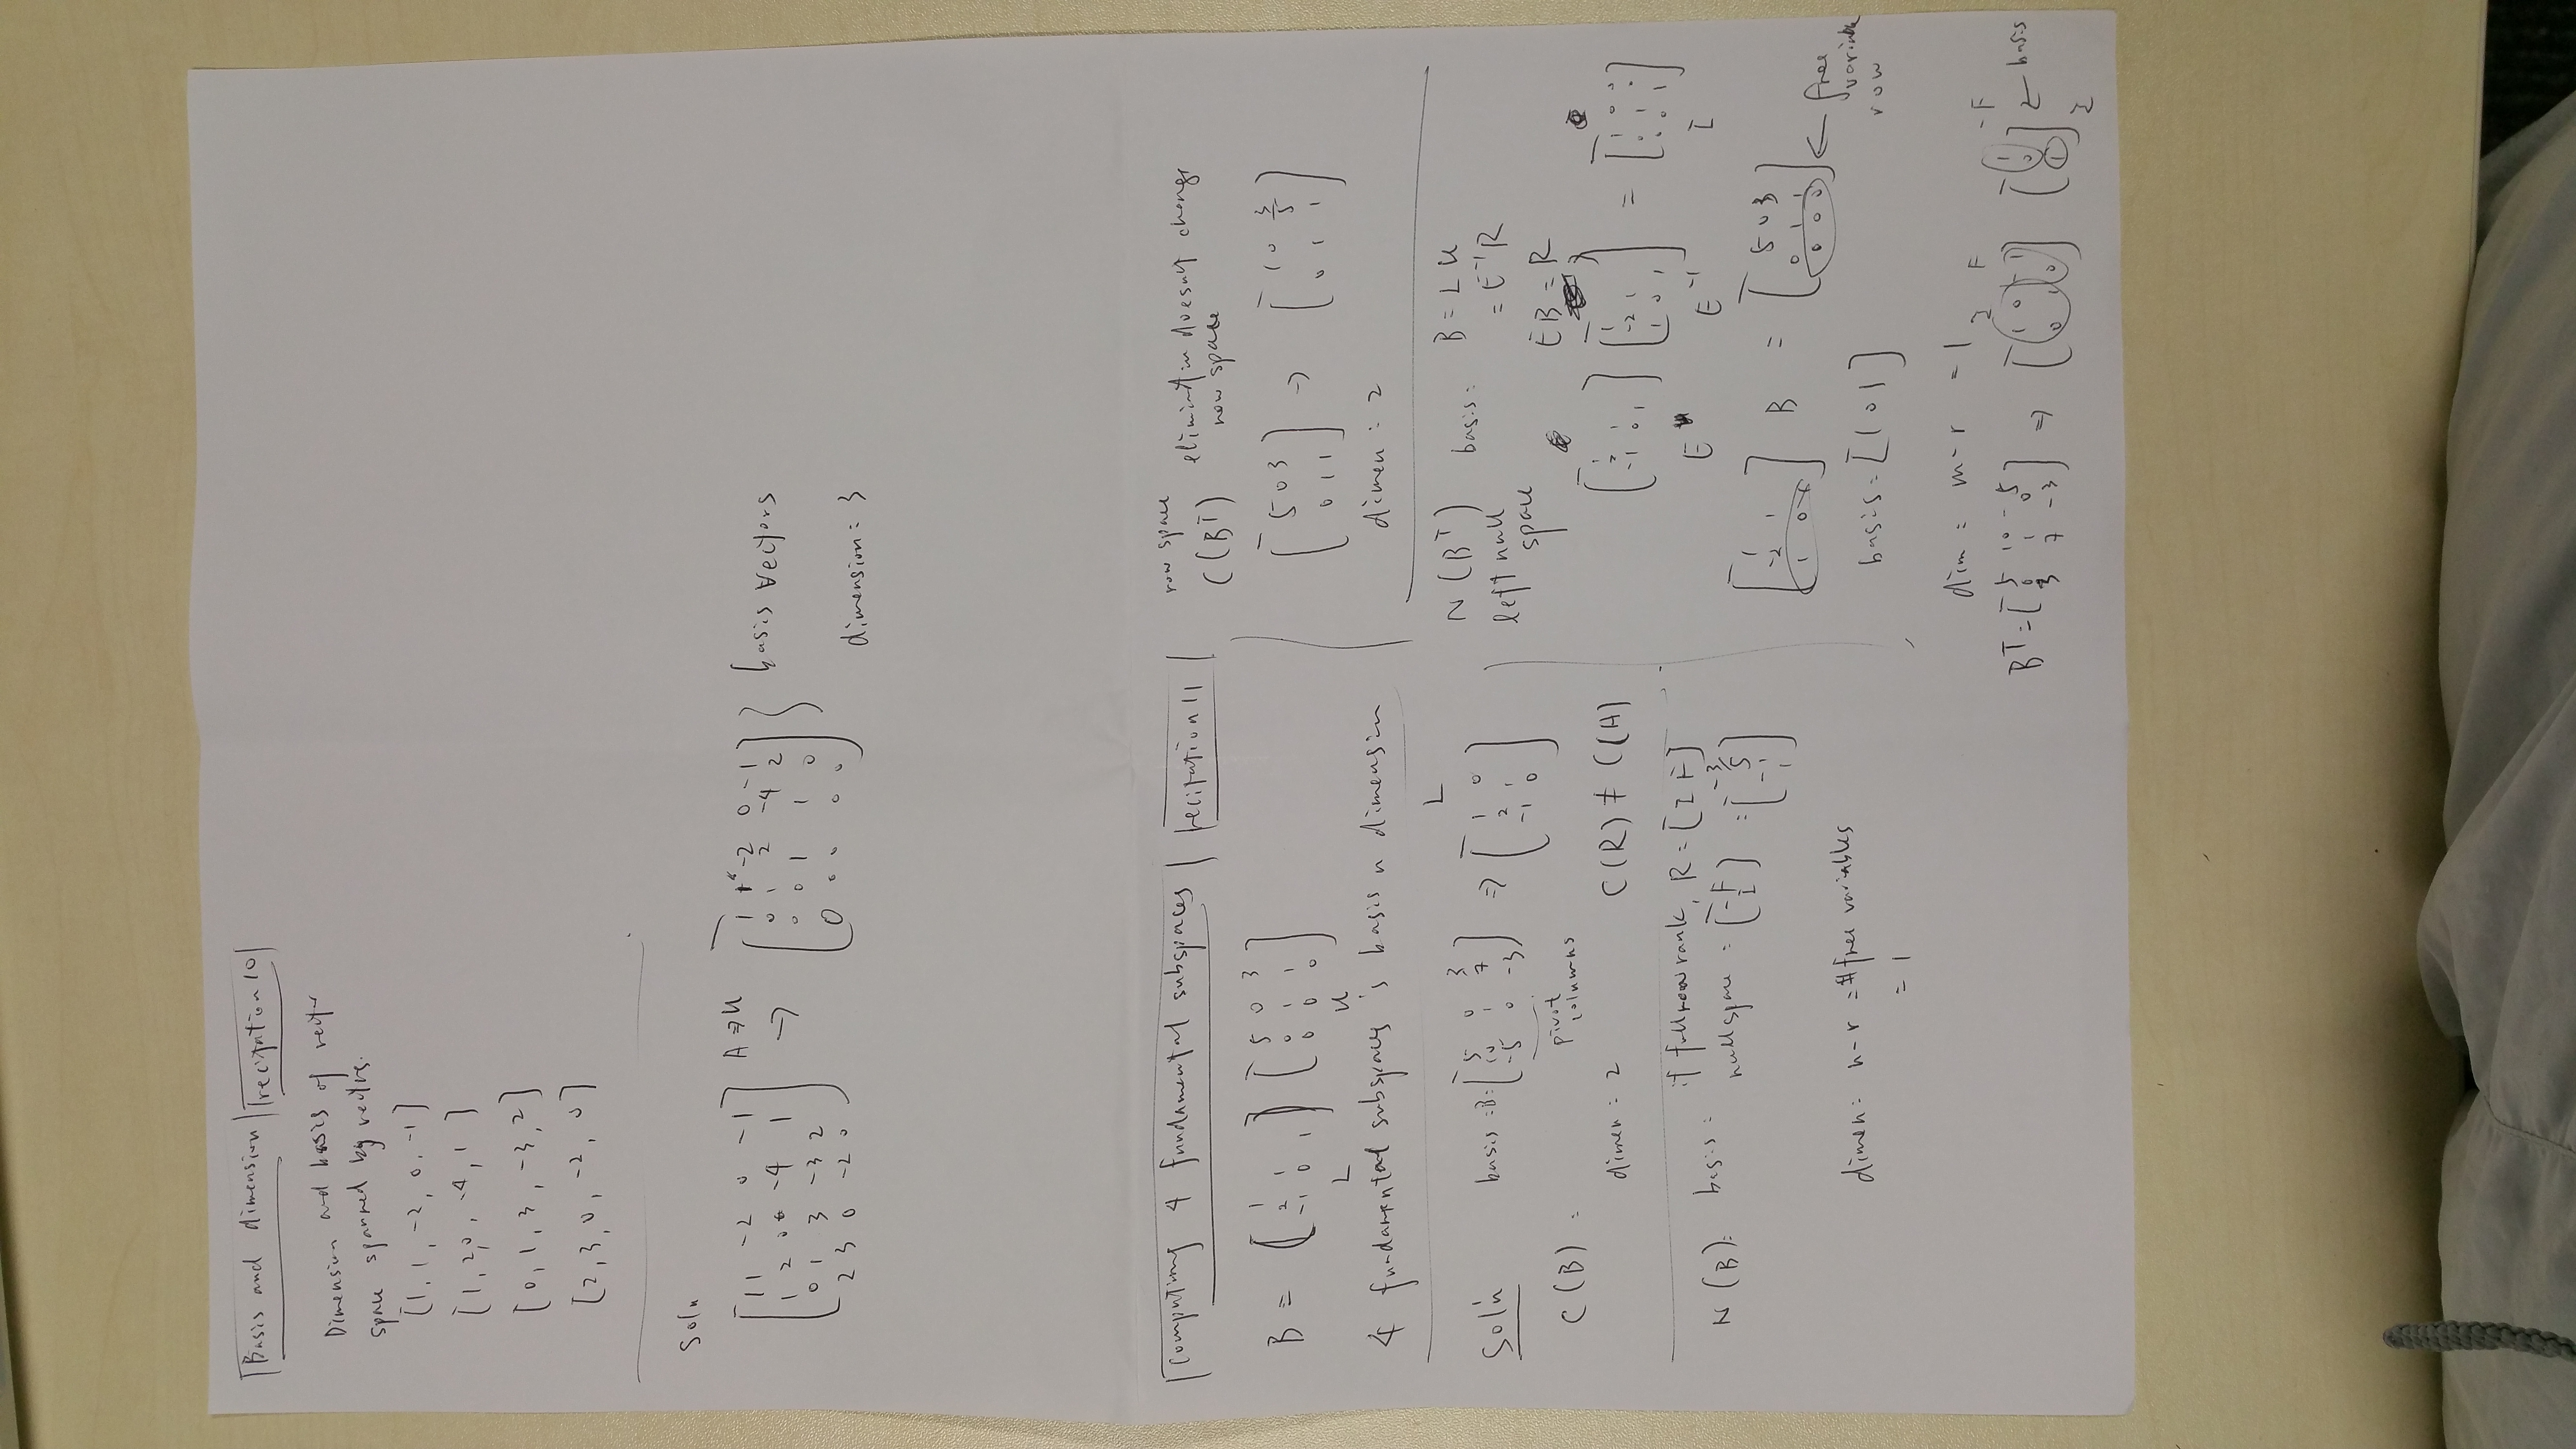 Basis and dimension recitation 10
Dimension and basis of vector
space spanned by vectors.
[1, 1, -2, 0, -1]
[1, 2, 0, -4, 1]
[0, 1, 3, -3, 2]
[2, 3, 0, -2, 0]
Soln
1 1 -2 0 -1
1 2 0 -4 1
0 1 3 -3 2
2 3 0 -2 0
A ⇒ U
→
1 1 -2 0 -1
0 1 2 -4 2
0 0 1 1 0
0 0 0 0 0
basis vectors
dimension: 3
Computing 4 fundamental subspaces recitation 11
B =
1
2 1
-1 0 1
L
5 0 3
0 1 1
0 0 0
U
4 fundamental subspaces's basis n dimension
Soln
C(B) :
basis = B =
5 0 3
10 1 7
-5 0 -3
pivot
columns
⇒
L
1 0
2 1
-1 0
dimen = 2
C(R) ≠ C(A)
N(B):
basis: if full row rank, R = [I F]
nullspace = [-F
I] =
-3/5
-1
1
dimen: n-r = # free variables
= 1
row space
C(B^T) elimination doesn't change
row space
5 0 3
0 1 1
→
1 0 3/5
0 1 1
dimen : 2
N(B^T)
left null
space
basis: B = L U
= E^-1 R
EB = R
1
2 1
-1 0 1
E
1
-2 1
1 0 1
E^-1
=
1 0 0
0 1 0
0 0 1
I
1
-2 1
1 0 1
B =
5 0 3
0 1 1
0 0 0
← free
variable
row
basis = [1 0 1]
dim = m-r = 1
B^T =
5 10 -5
0 1 0
3 7 -3
⇒
I F
1 0 -1
0 1 0
1
0
1
-F
I
← basis